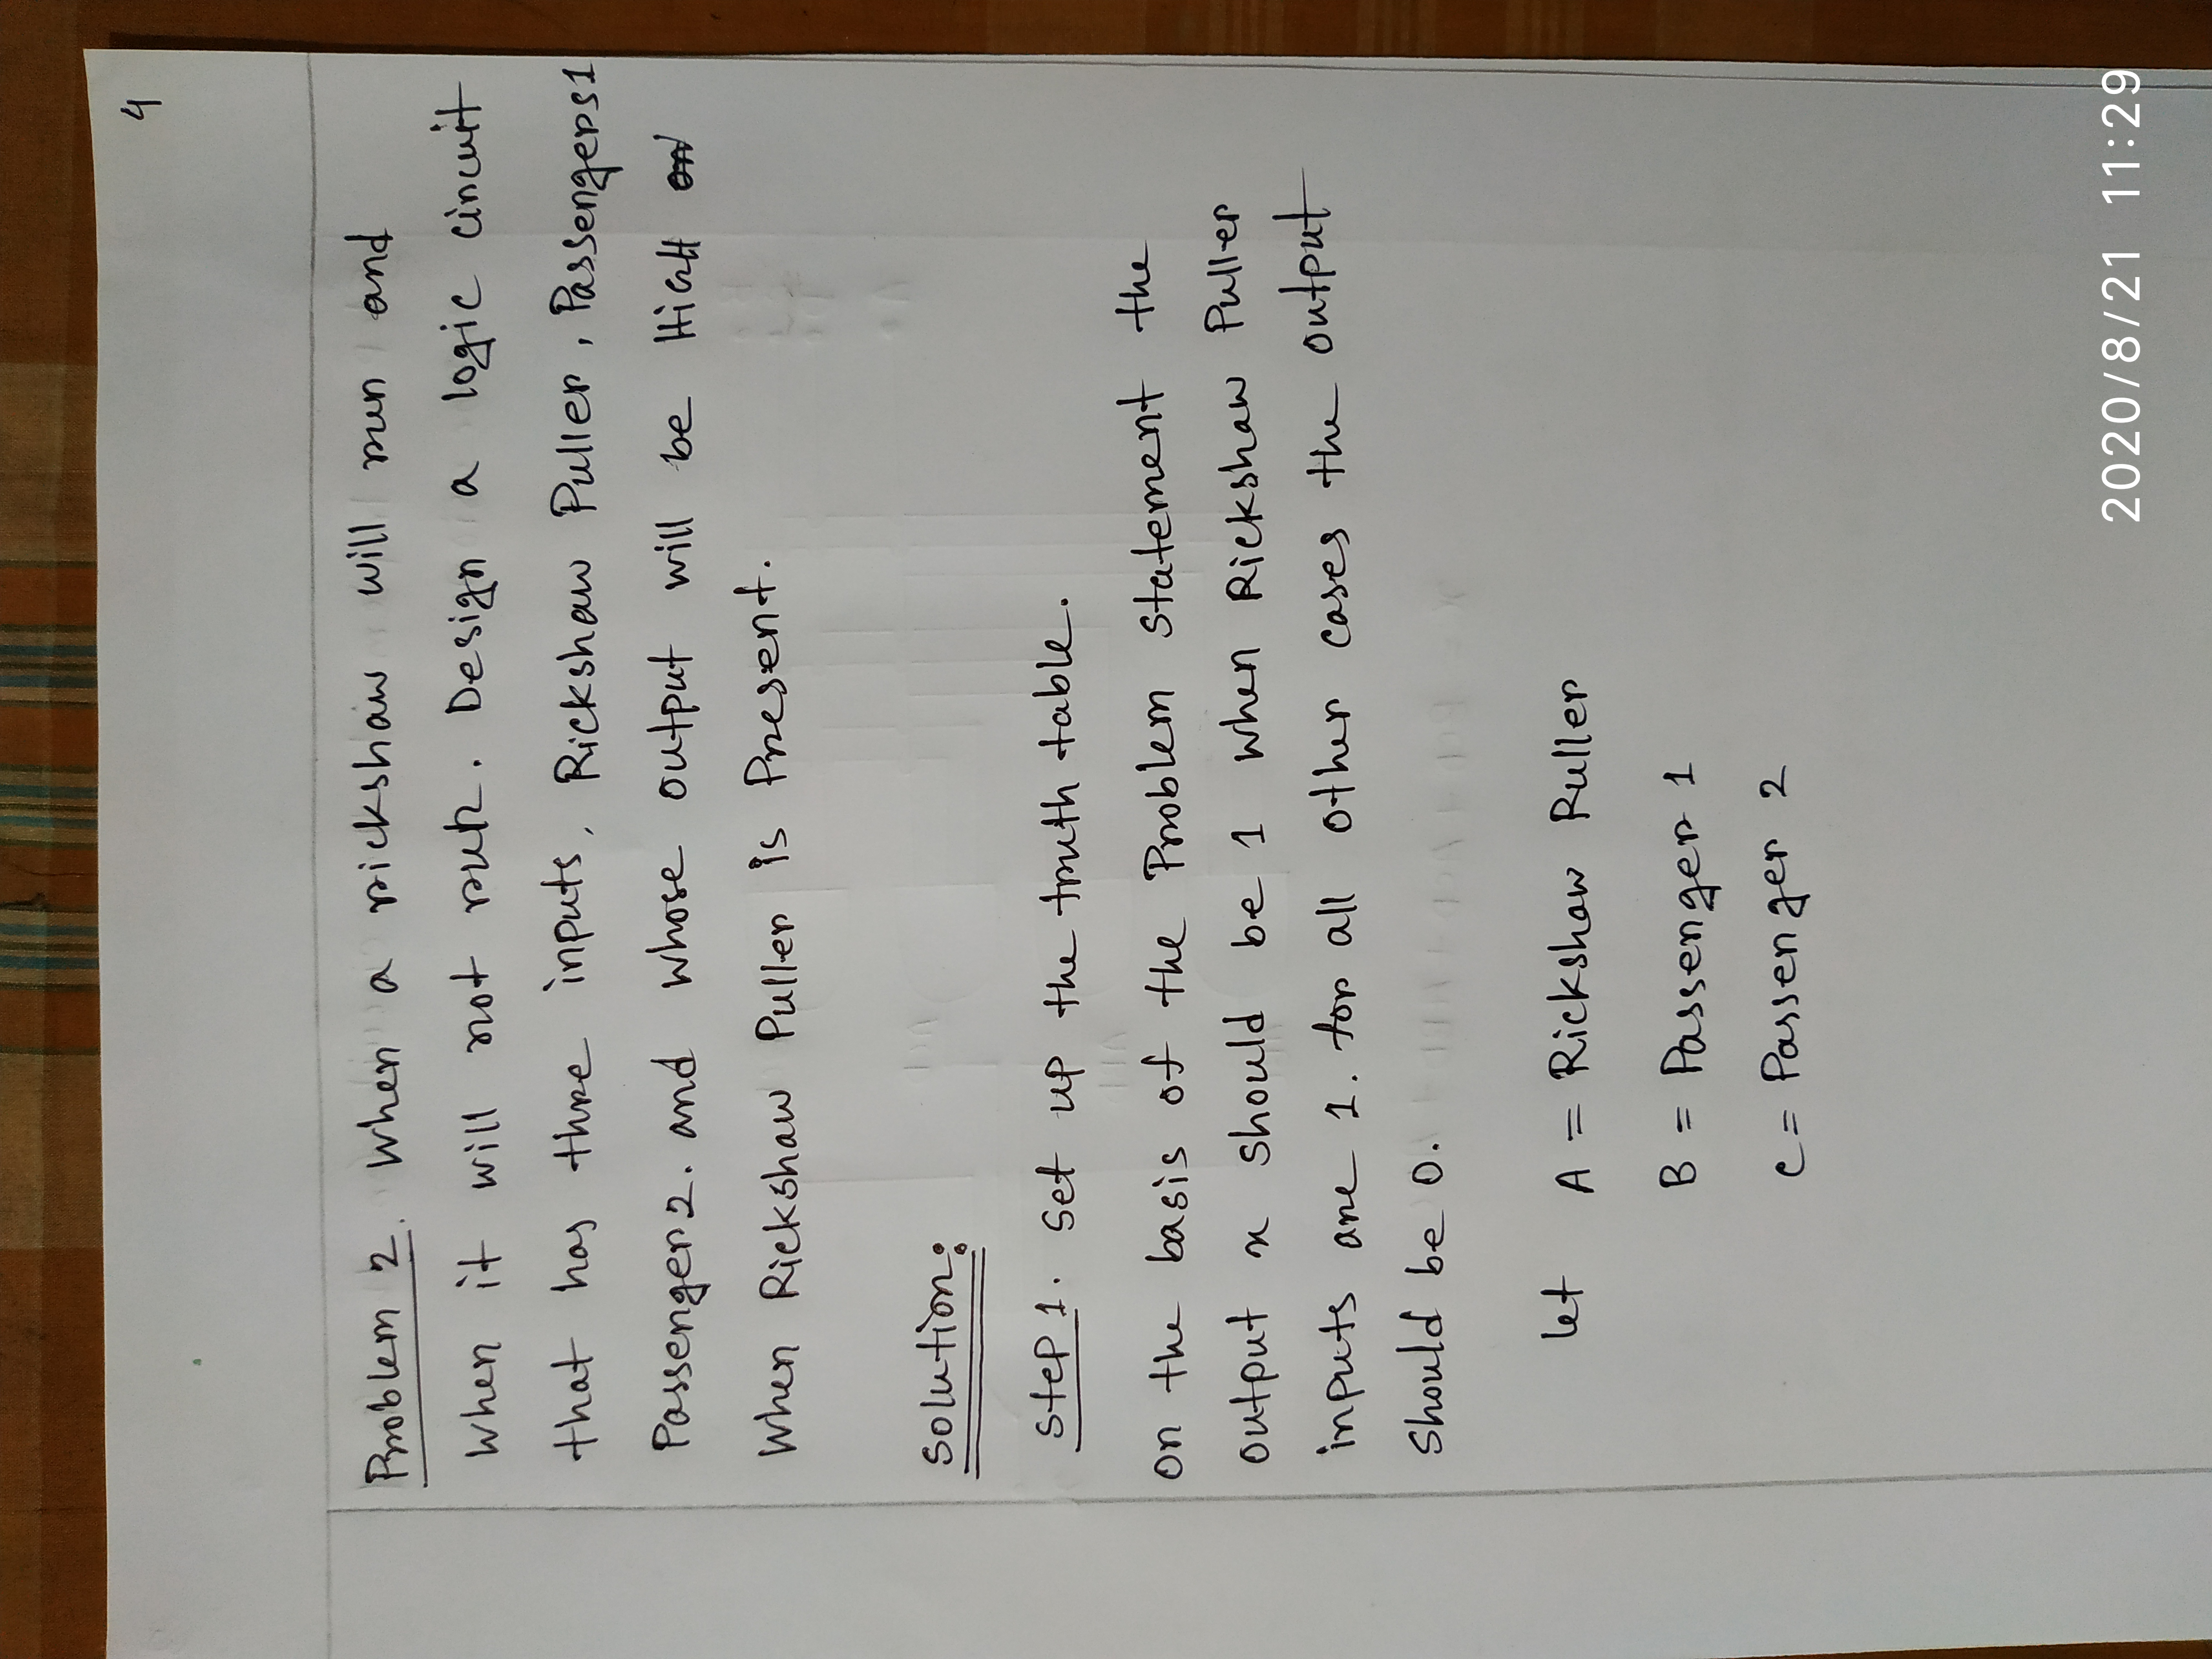 4
Problem 2. When a rickshaw will run and
when it will not run. Design a logic circuit
that has three inputs, Rickshaw Puller, Passengers1
Passenger2. and whose output will be HIGH or
When Rickshaw Puller is Present.
Solution:
Step 1. Set up the truth table.
on the basis of the Problem statement the
output x should be 1 when Rickshaw Puller
inputs are 1. for all other cases the output
Should be 0.
let A = Rickshaw Puller
B = Passenger 1
C = Passenger 2
2020/8/21 11:29